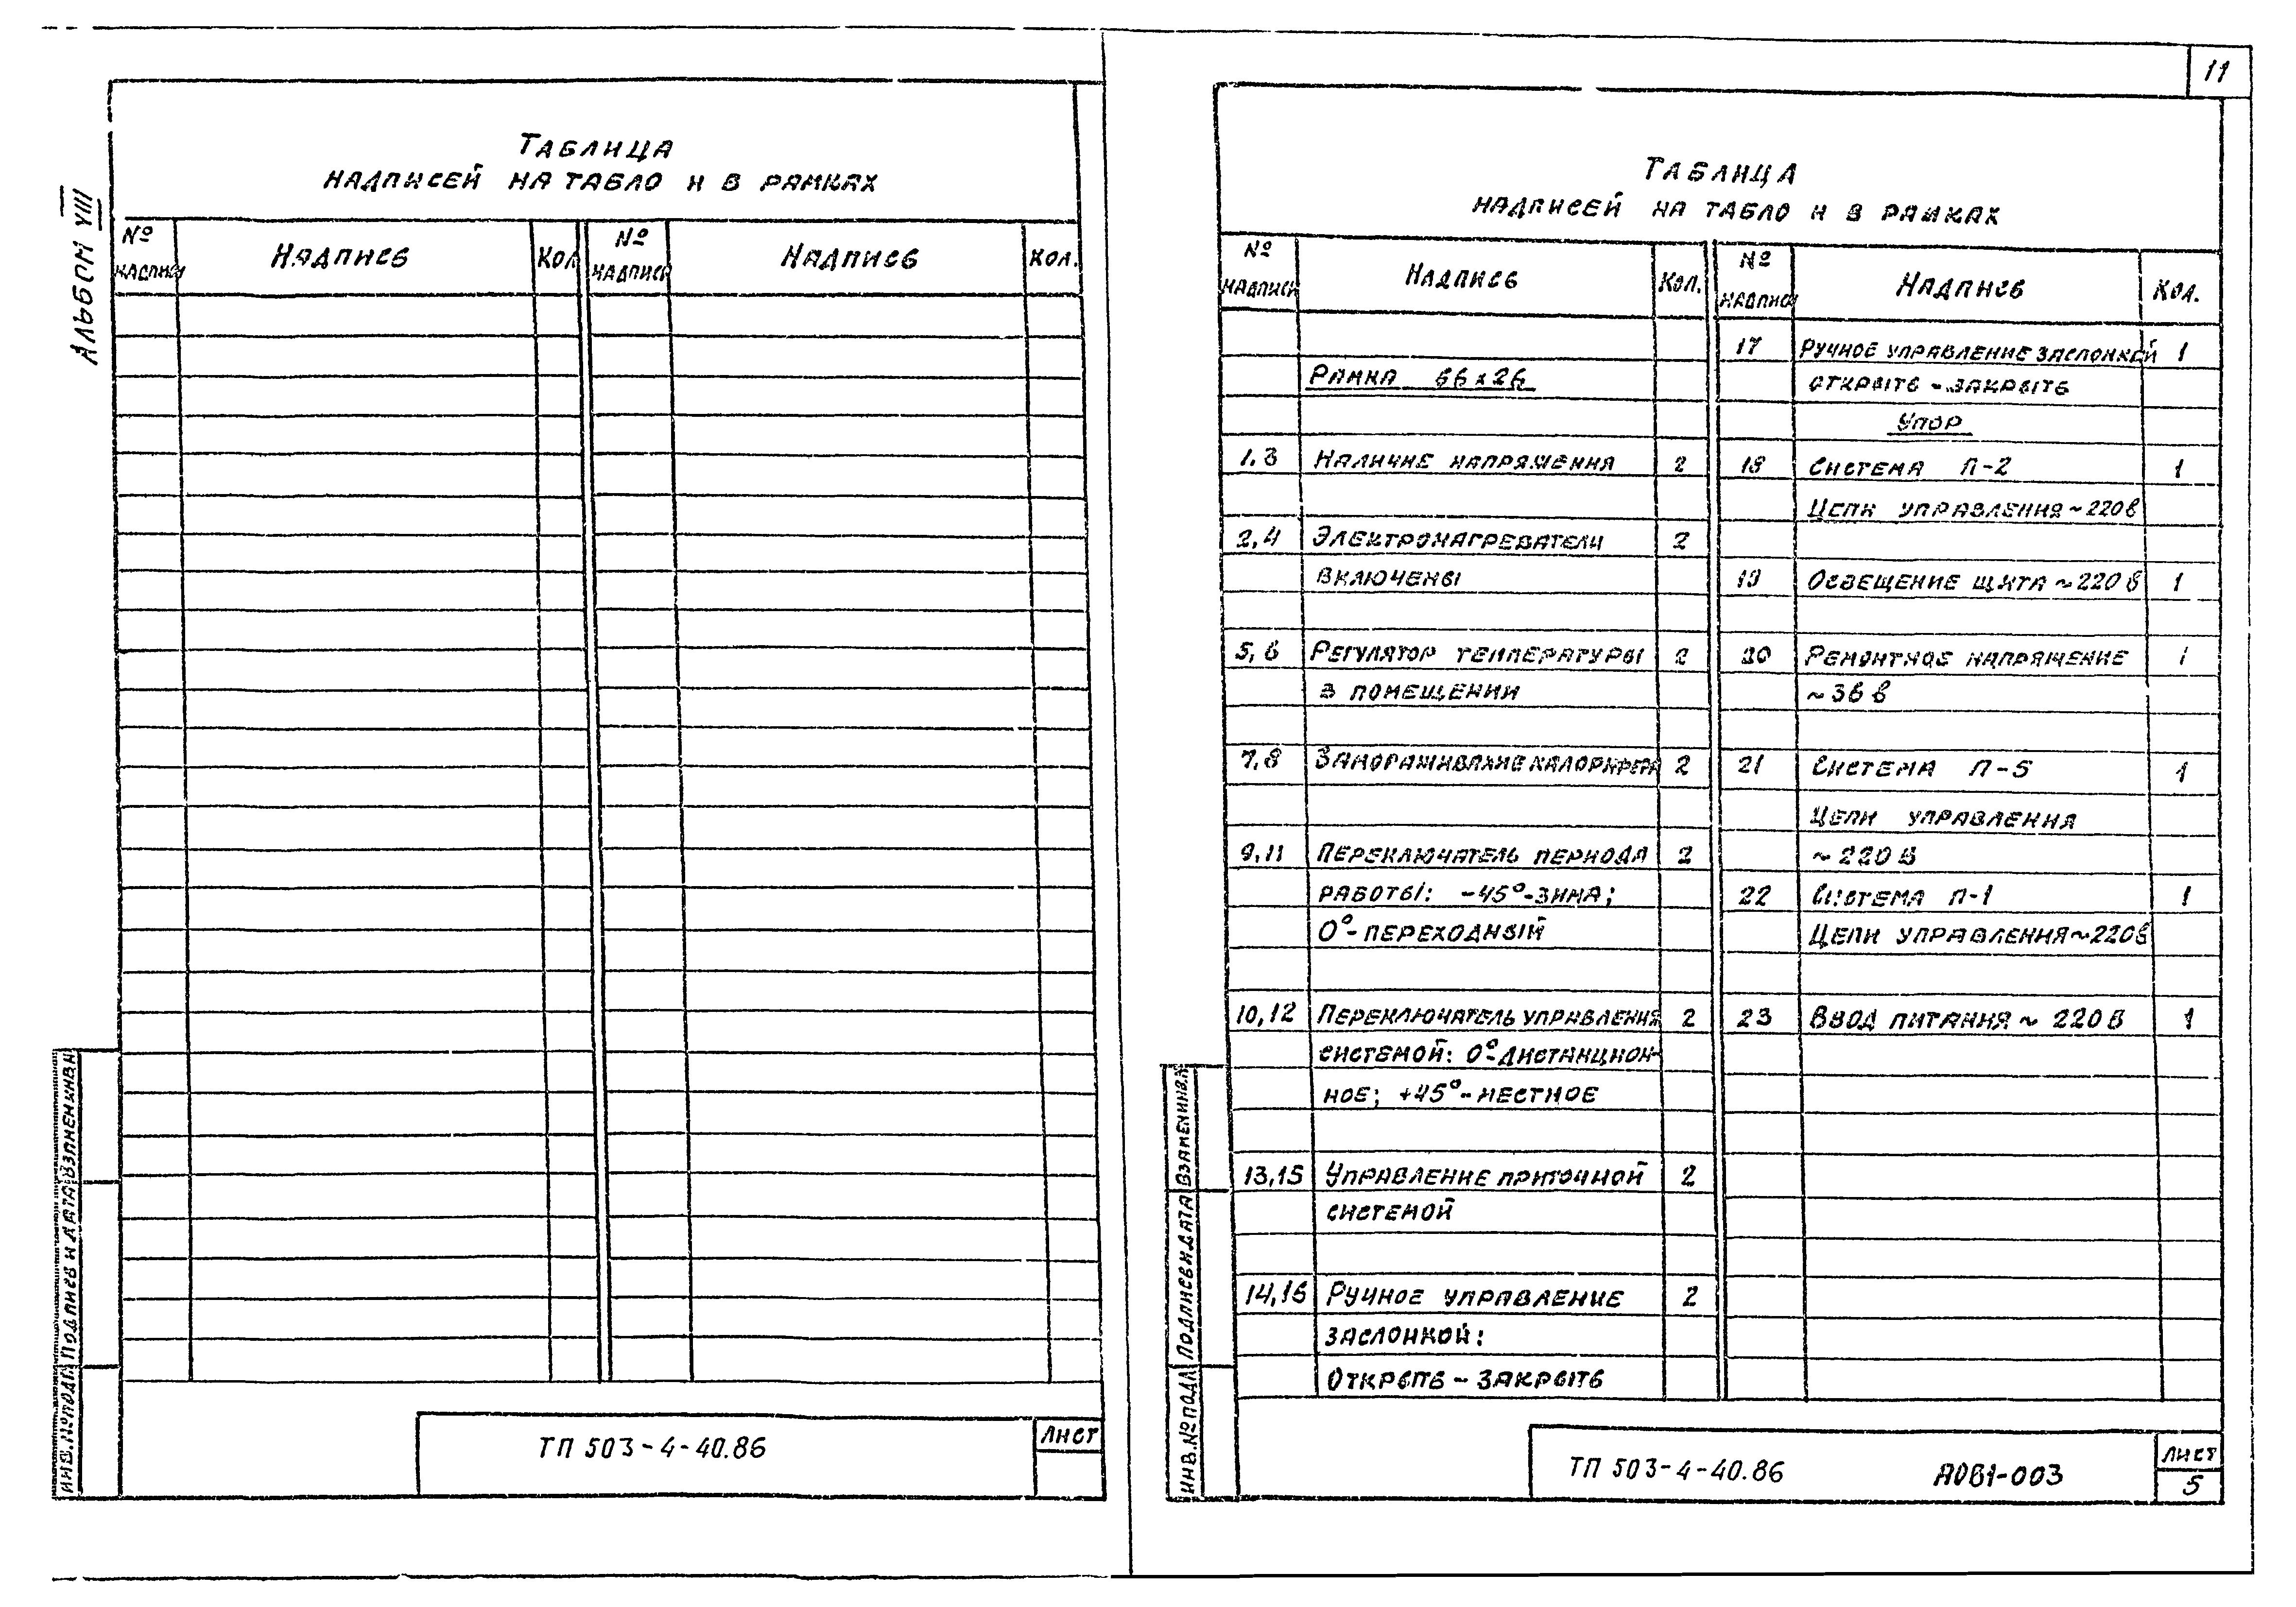 Альбом VIII
Таблица
надписей на табло и в рамках
№ надписи Надпись Кол. № надписи Надпись Кол.
Инв. № подл. Подпись и дата Взамен инв. №
ТП 503-4-40.86
Лист
11
Таблица
надписей на табло и в рамках
№ надписи Надпись Кол. № надписи Надпись Кол.
Рамка 66х26
1,3 Наличие напряжения 2
2,4 Электронагреватели 2
включены
5,6 Регулятор температуры 2
в помещении
7,8 Замораживание калорифера 2
9,11 Переключатель периода 2
работы: -45°-зима;
0°-переходный
10,12 Переключатель управления 2
системой: 0°-дистанцион-
ное; +45°-местное
13,15 Управление приточной 2
системой
14,16 Ручное управление 2
заслонкой:
Открыть - закрыть
17 Ручное управление заслонкой 1
открыть - закрыть
Упор
18 Система П-2 1
Цепи управления ~220в
19 Освещение щита ~220в 1
20 Ремонтное напряжение 1
~36в
21 Система П-5 1
Цепи управления
~220в
22 Система П-1 1
Цепи управления ~220в
23 Ввод питания ~220в 1
Инв. № подл. Подпись и дата Взамен инв. №
ТП 503-4-40.86 АОВ1-003
Лист
5